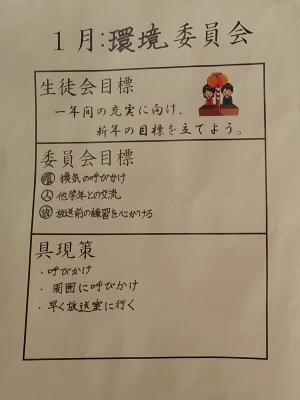 1月:環境委員会
生徒会目標
一年間の充実に向け、
新年の目標を立てよう。
委員会目標
環 換気の呼びかけ
人 他学年との交流
放 放送前の練習を心がける
具現策
・呼びかけ
・周囲に呼びかけ
・早く放送室に行く